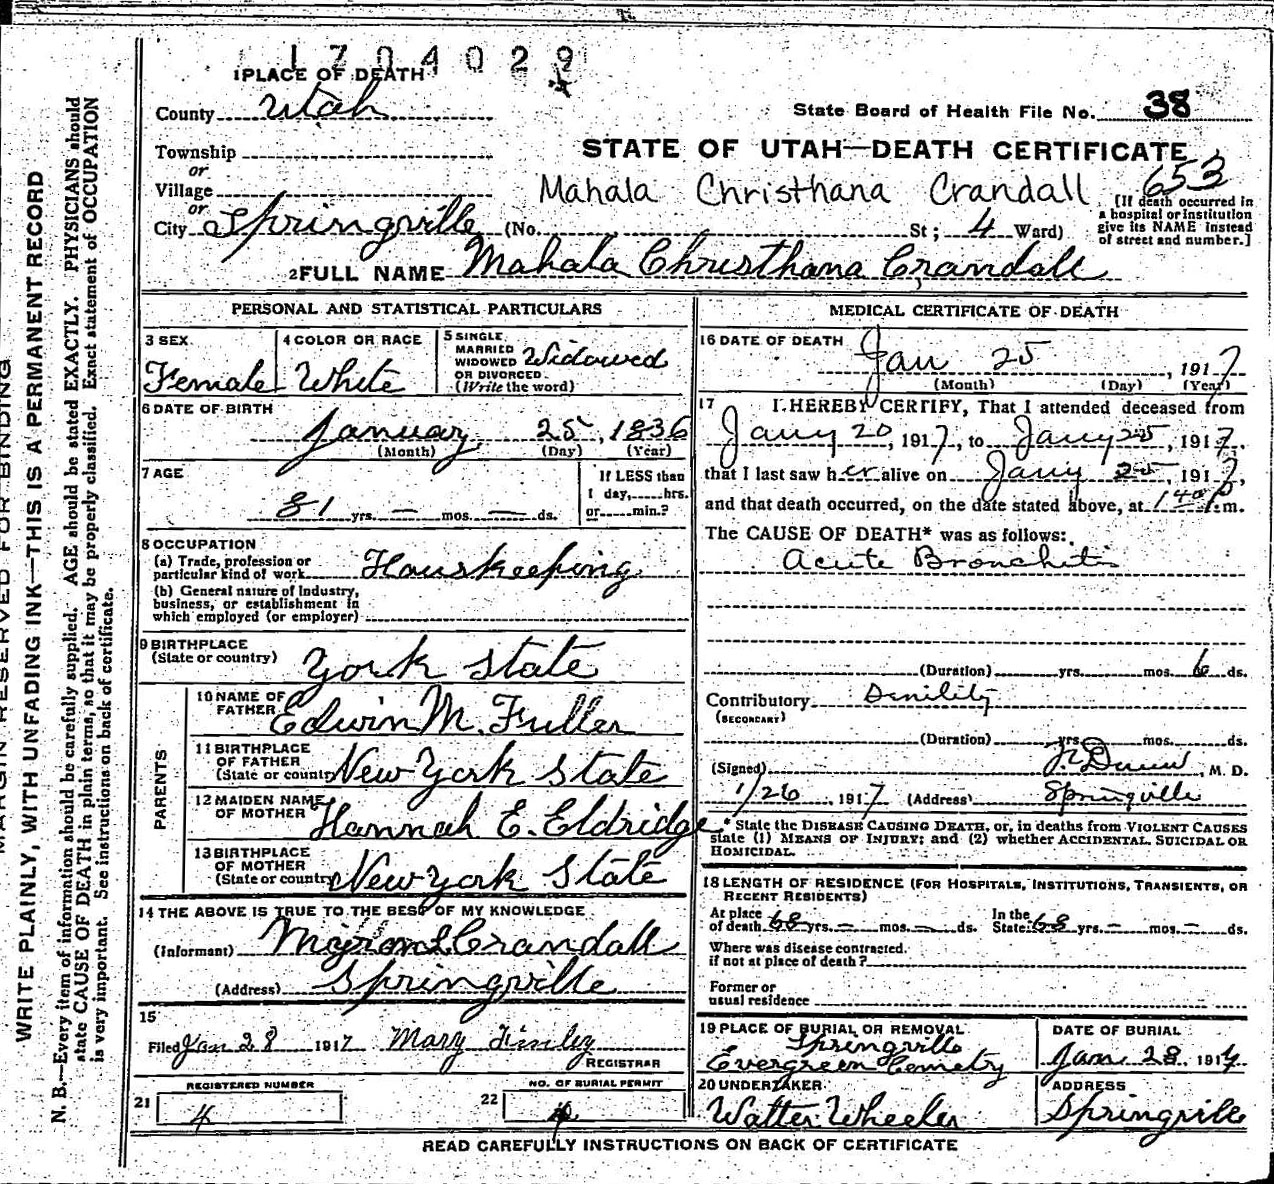 1704029
1 PLACE OF DEATH
County Utah
State Board of Health File No. 38
Township
or
Village
or
City Springville (No. St; 4 Ward)
STATE OF UTAH—DEATH CERTIFICATE
653
Mahala Christhana Crandall
[If death occurred in
a hospital or institution
give its NAME instead
of street and number.]
2 FULL NAME Mahala Christhana Crandall
PERSONAL AND STATISTICAL PARTICULARS
3 SEX
Female
4 COLOR OR RACE
White
5 SINGLE
MARRIED
WIDOWED
OR DIVORCED
(Write the word)
Widowed
6 DATE OF BIRTH
January 25, 1836
(Month) (Day) (Year)
7 AGE
81 yrs. — mos. — ds.
If LESS than
1 day, hrs.
or min.?
8 OCCUPATION
(a) Trade, profession or
particular kind of work Houskeeping
(b) General nature of Industry,
business, or establishment in
which employed (or employer)
9 BIRTHPLACE
(State or country) York State
PARENTS
10 NAME OF
FATHER Edwin M. Fuller
11 BIRTHPLACE
OF FATHER
(State or country New York State
12 MAIDEN NAME
OF MOTHER Hannah E. Eldridge
13 BIRTHPLACE
OF MOTHER
(State or country New York State
14 THE ABOVE IS TRUE TO THE BEST OF MY KNOWLEDGE
(Informant) Myron E Crandall
(Address) Springville
15
Filed Jan 28 1917 Mary Finley
REGISTRAR
REGISTERED NUMBER
21 4
NO. OF BURIAL PERMIT
22 4
MEDICAL CERTIFICATE OF DEATH
16 DATE OF DEATH
Jan 25, 1917
(Month) (Day) (Year)
17 I HEREBY CERTIFY, That I attended deceased from
Jany 20, 1917, to Jany 25, 1917,
that I last saw her alive on Jany 25, 1917,
and that death occurred, on the date stated above, at 1 40 P m.
The CAUSE OF DEATH* was as follows:
Acute Bronchitis
(Duration) yrs. mos. 6 ds.
Contributory Senility
(SECONDARY)
(Duration) yrs. mos. ds.
(Signed) , M. D.
1/26, 1917 (Address) Springville
* State the DISEASE CAUSING DEATH, or, in deaths from VIOLENT CAUSES
state (1) MEANS OF INJURY; and (2) whether ACCIDENTAL, SUICIDAL OR
HOMICIDAL.
18 LENGTH OF RESIDENCE (FOR HOSPITALS, INSTITUTIONS, TRANSIENTS, OR
RECENT RESIDENTS)
At place of death 68 yrs. — mos. — ds. In the State 68 yrs. — mos. — ds.
Where was disease contracted.
if not at place of death?
Former or
usual residence
19 PLACE OF BURIAL OR REMOVAL
Springville
Evergreen Cemetry
DATE OF BURIAL
Jan. 28. 1917
20 UNDERTAKER
Walter Wheeler
ADDRESS
Springville
READ CAREFULLY INSTRUCTIONS ON BACK OF CERTIFICATE
MARGIN RESERVED FOR BINDING
WRITE PLAINLY, WITH UNFADING INK—THIS IS A PERMANENT RECORD
N. B.—Every item of information should be carefully supplied. AGE should be stated EXACTLY. PHYSICIANS should
state CAUSE OF DEATH in plain terms, so that it may be properly classified. Exact statement of OCCUPATION
is very important. See instructions on back of certificate.